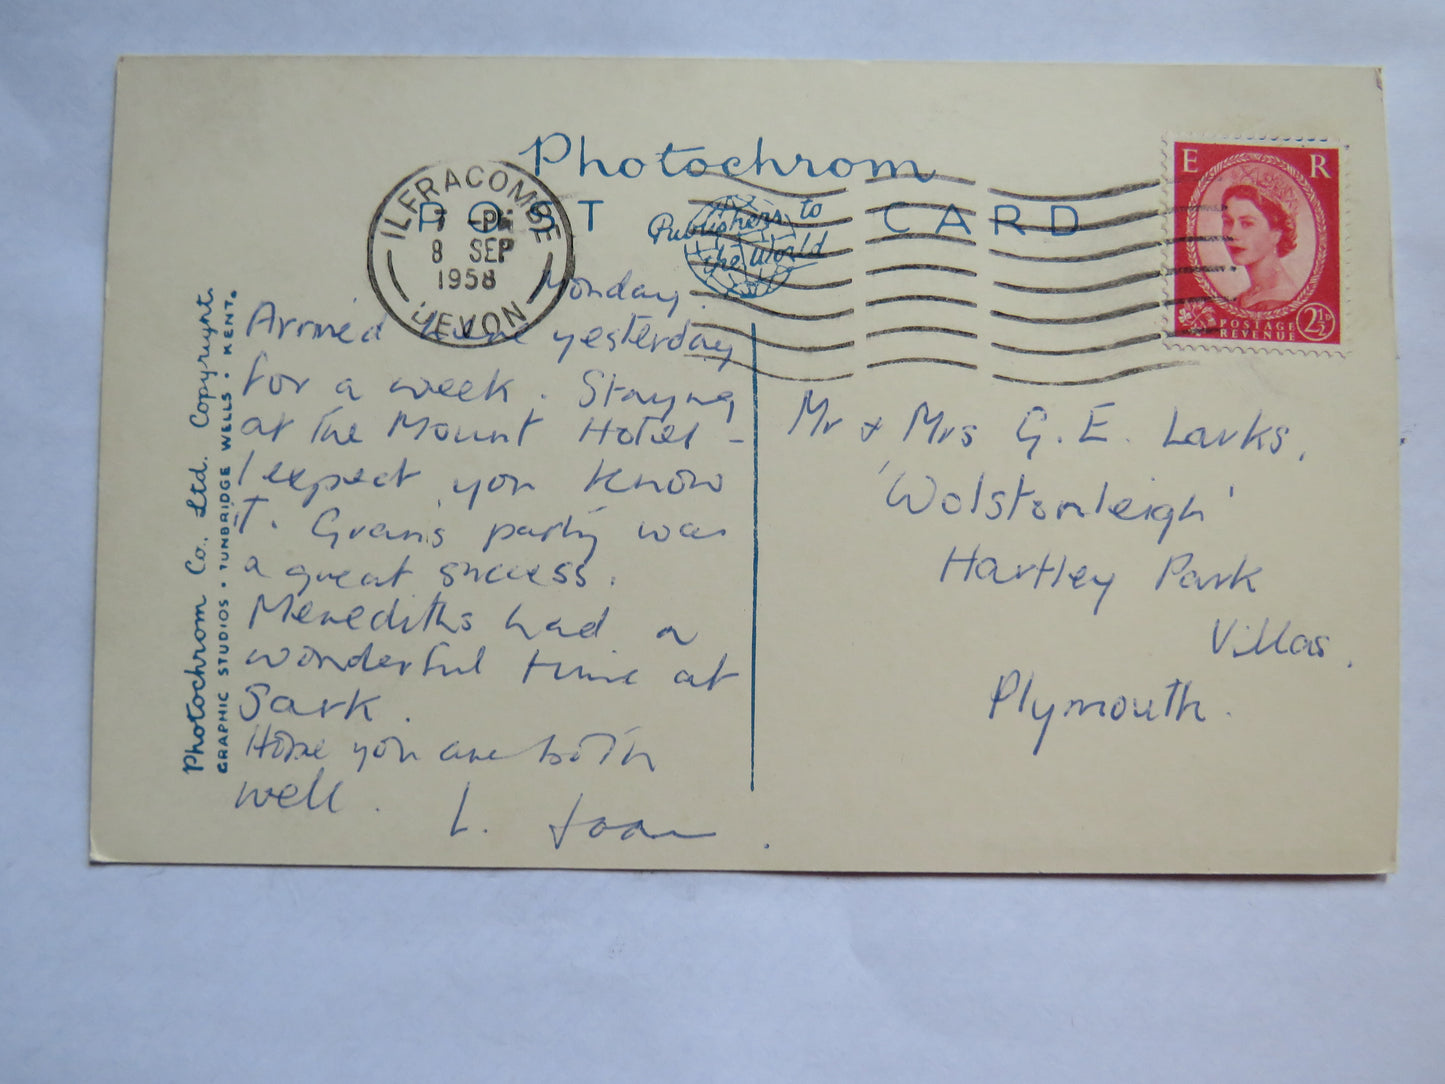 Photochrom
POST CARD
Publishers to
the World
ILFRACOMBE
7 - PM
8 SEP
1958
DEVON
E R
POSTAGE
REVENUE
2½
Photochrom Co., Ltd. Copyright.
GRAPHIC STUDIOS • TUNBRIDGE WELLS • KENT.
Monday.
Arrived here yesterday
for a week. Staying
at the Mount Hotel -
I expect you know
it. Gran's party was
a great success.
Merediths had a
wonderful time at
Sark.
Hope you are both
well.
L. Joan.
Mr & Mrs G. E. Larks,
'Wolstonleigh'
Hartley Park
Villas,
Plymouth.